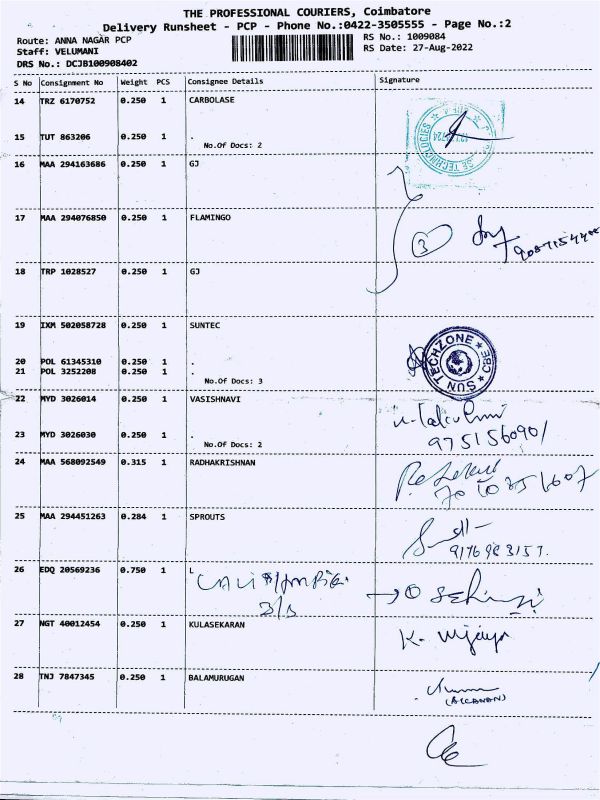 THE PROFESSIONAL COURIERS, Coimbatore
Delivery Runsheet - PCP - Phone No.:0422-3505555 - Page No.:2
Route: ANNA NAGAR PCP
Staff: VELUMANI
DRS No.: DCJB100908402
RS No.: 1009084
RS Date: 27-Aug-2022
S No Consignment No Weight PCS Consignee Details Signature
14 TRZ 6170752 0.250 1 CARBOLASE
15 TUT 863206 0.250 1 .
No.Of Docs: 2
16 MAA 294163686 0.250 1 GJ
17 MAA 294076850 0.250 1 FLAMINGO
3
18 TRP 1028527 0.250 1 GJ
19 IXM 502058728 0.250 1 SUNTEC
20 POL 61345310 0.250 1 .
21 POL 3252208 0.250 1 .
No.Of Docs: 3
SUN TECHZONE ★ CBE ★
22 MYD 3026014 0.250 1 VASISHNAVI
23 MYD 3026030 0.250 1 .
No.Of Docs: 2
9751560901
24 MAA 568092549 0.315 1 RADHAKRISHNAN
25 MAA 294451263 0.284 1 SPROUTS
26 EDQ 20569236 0.750 1 L
27 NGT 40012454 0.250 1 KULASEKARAN
K. Vijaya
28 TNJ 7847345 0.250 1 BALAMURUGAN